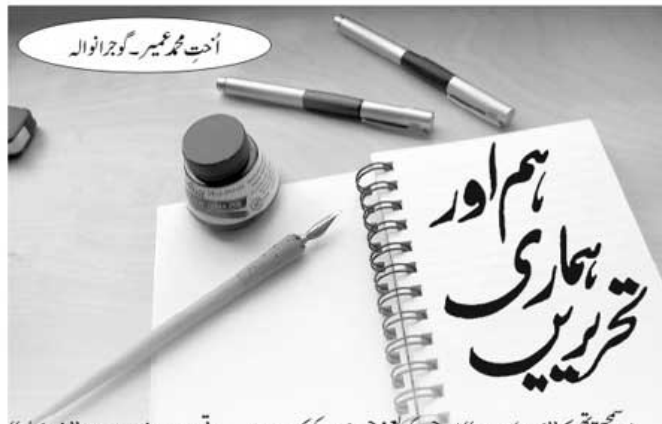 اُختِ محمد عمیر۔ گوجرانوالہ
ہم اور
ہماری
تحریریں